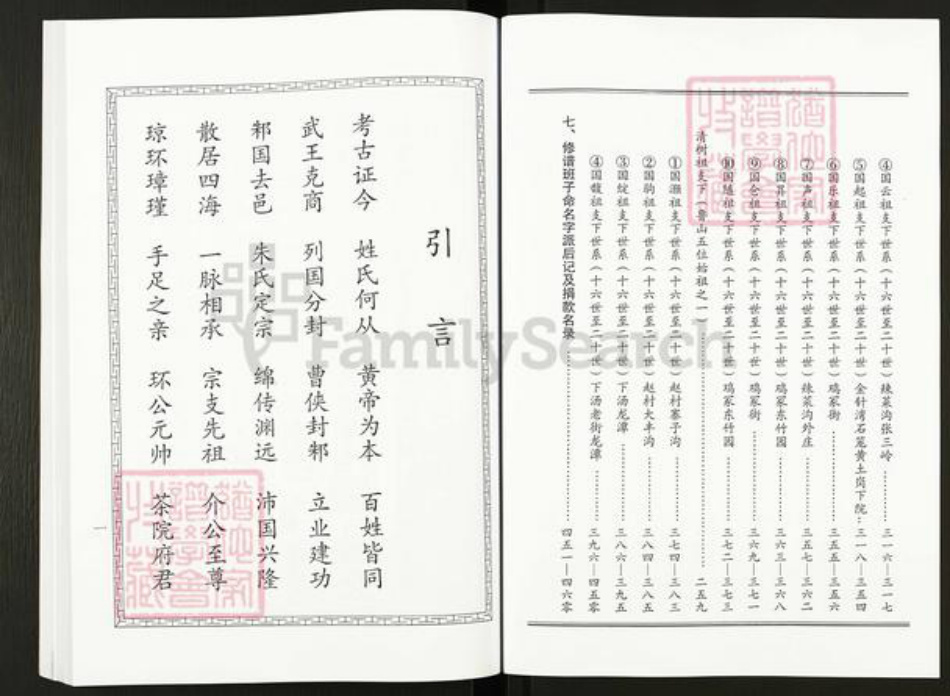 ④国云祖支下世系（十六世至二十世）辣菜沟张三岭…………三一六—三一七
⑤国起祖支下世系（十六世至二十世）金针湾石笼黄土岗下院…三一八—三五四
⑥国乐祖支下世系（十六世至二十世）鸡冢街…………三五五—三五六
⑦国声祖支下世系（十六世至二十世）辣菜沟外庄…………三五七—三六二
⑧国昇祖支下世系（十六世至二十世）鸡冢东竹园…………三六三—三六八
⑨国仑祖支下世系（十六世至二十世）鸡冢街…………三六九—三七一
⑩国随祖支下世系（十六世至二十世）鸡冢东竹园…………三七二—三七三
清树祖支下（鲁山五位始祖之一）…………二五九
①国灏祖支下世系（十六世至二十世）赵村寨子沟…………三七四—三八三
②国驹祖支下世系（十六世至二十世）赵村大丰沟…………三八四—三八五
③国绽祖支下世系（十六世至二十世）下汤龙潭…………三八六—三九五
④国馥祖支下世系（十六世至二十世）下汤老街龙潭…………三九六—四五零
七、修谱班子命名字派后记及捐款名录…………四五一—四六零
引言
考古证今 姓氏何从 黄帝为本 百姓皆同
武王克商 列国分封 曹侠封邾 立业建功
邾国去邑 朱氏定宗 绵传渊远 沛国兴隆
散居四海 一脉相承 宗支先祖 介公至尊
琼环璋瑾 手足之亲 环公元帅 茶院府君
一
FamilySearch